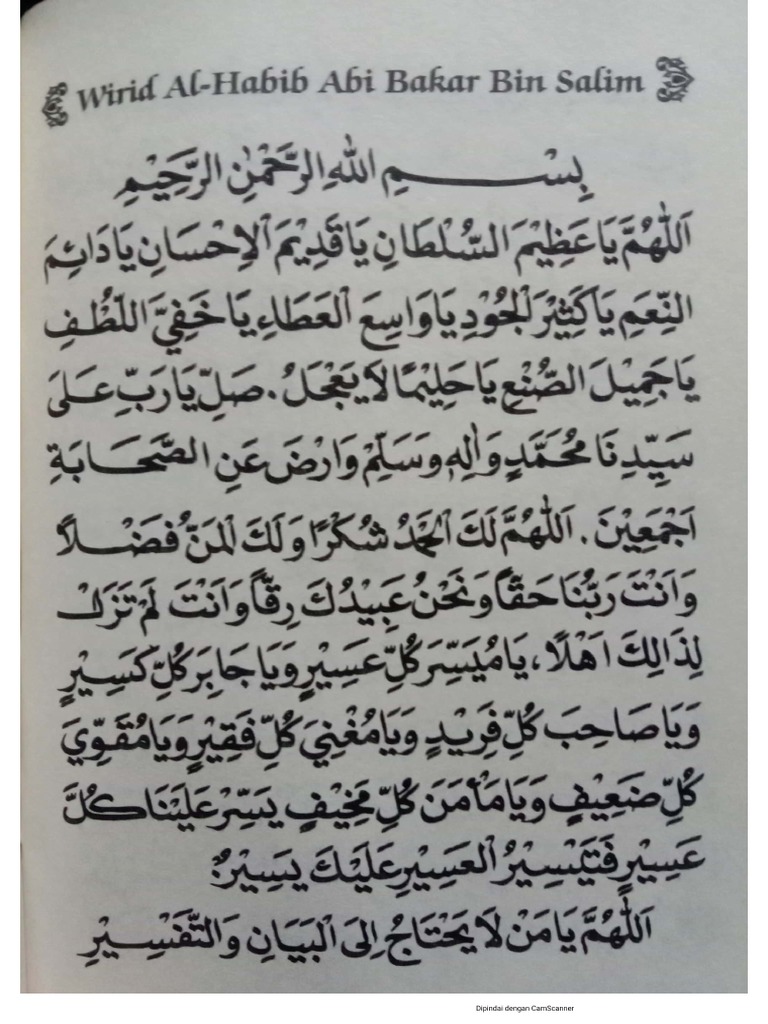 Wirid Al-Habib Abi Bakar Bin Salim
بِسْـــــــمِ اللهِ الرَّحْمٰنِ الرَّحِيْمِ
اَللّٰهُمَّ يَا عَظِيْمَ السُّلْطَانِ يَا قَدِيْمَ اْلاِحْسَانِ يَا دَائِمَ
النِّعَمِ يَا كَثِيْرَ الْجُوْدِ يَا وَاسِعَ الْعَطَاءِ يَا خَفِيَّ اللُّطْفِ
يَا جَمِيْلَ الصُّنْعِ يَا حَلِيْمًا لَا يَعْجَلُ. صَلِّ يَا رَبِّ عَلَى
سَيِّدِنَا مُحَمَّدٍ وَاٰلِهٖ وَسَلِّمْ وَارْضَ عَنِ الصَّحَابَةِ
اَجْمَعِيْنَ. اَللّٰهُمَّ لَكَ الْحَمْدُ شُكْرًا وَلَكَ الْمَنُّ فَضْلًا
وَاَنْتَ رَبُّنَا حَقًّا وَنَحْنُ عَبِيْدُكَ رِقًّا وَاَنْتَ لَمْ تَزَلْ
لِذَالِكَ اَهْلًا، يَا مُيَسِّرَ كُلِّ عَسِيْرٍ وَيَا جَابِرَ كُلِّ كَسِيْرٍ
وَيَا صَاحِبَ كُلِّ فَرِيْدٍ وَيَا مُغْنِيَ كُلِّ فَقِيْرٍ وَيَا مُقَوِّيَ
كُلِّ ضَعِيْفٍ وَيَا مَأْمَنَ كُلِّ مَخِيْفٍ يَسِّرْ عَلَيْنَا كُلَّ
عَسِيْرٍ فَتَيْسِيْرُ الْعَسِيْرِ عَلَيْكَ يَسِيْرٌ:
اَللّٰهُمَّ يَا مَنْ لَا يَحْتَاجُ اِلَى الْبَيَانِ وَالتَّفْسِيْرِ
Dipindai dengan CamScanner